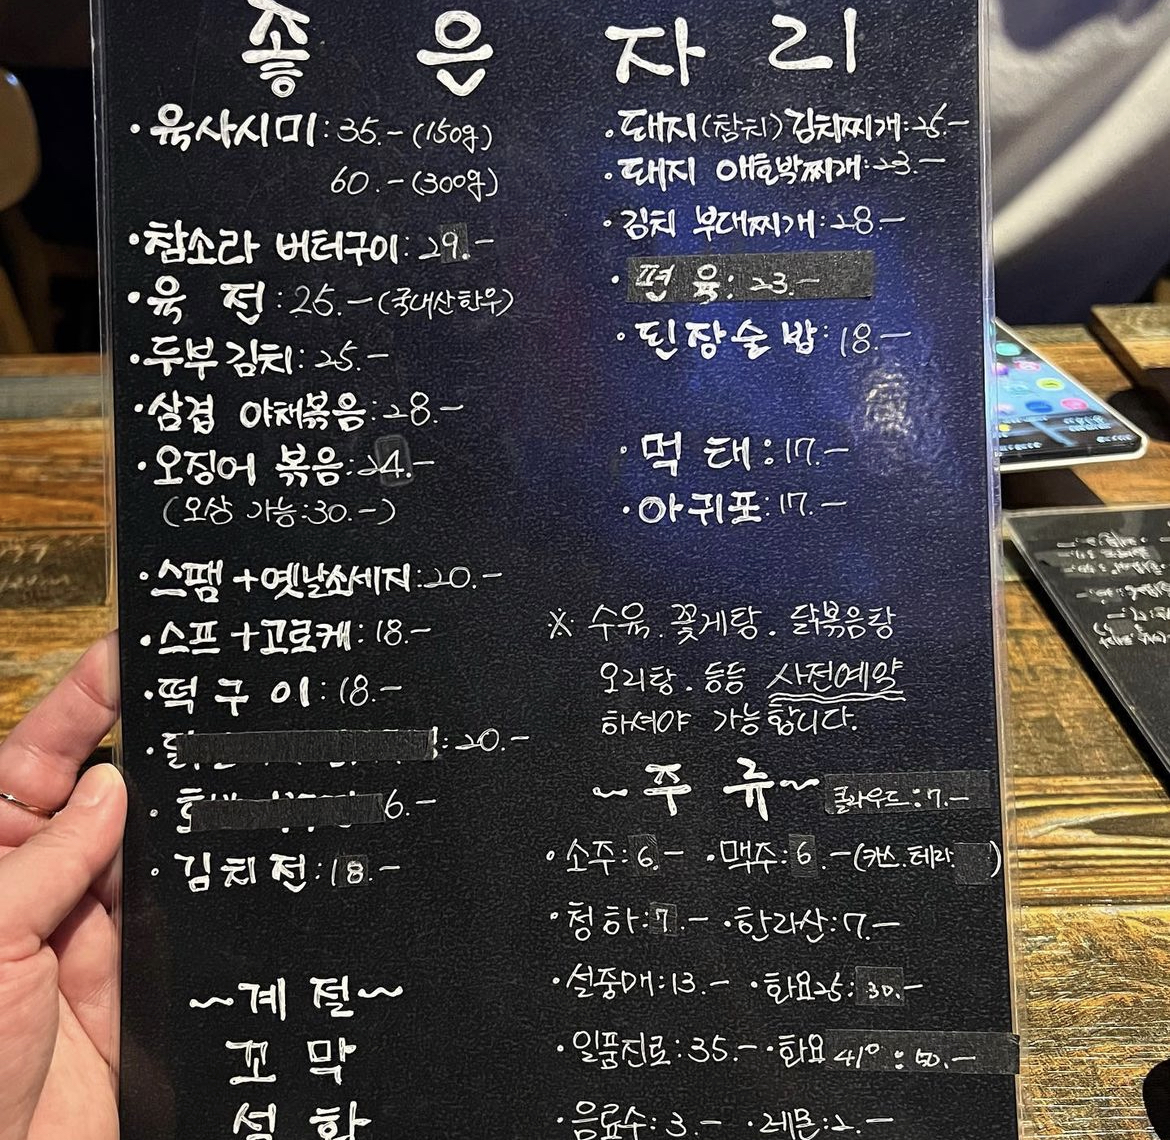 좋은자리
·육사시미:35.-(150g)
60.-(300g)
·참소라 버터구이:29.-
·육 전:25.-(국내산한우)
·두부김치:25.-
·삼겹 야채볶음:28.-
·오징어 볶음:24.-
(오삼 가능:30.-)
·스팸+옛날소세지:20.-
·스프+고로케:18.-
·떡구이:18.-
:20.-
6.-
·김치전:18.-
~계절~
꼬막
석화
·돼지(참치)김치찌개:25.-
·돼지 애호박찌개:23.-
·김치 부대찌개:28.-
·편육:23.-
·된장술밥:18.-
·먹태:17.-
·아귀포:17.-
※ 수육.꽃게탕.닭볶음탕
오리탕.등등 사전예약
하셔야 가능합니다.
~주류~ 클라우드:7.-
·소주:6.- ·맥주:6.-(카스.테라)
·청하:7.- ·한라산:7.-
·설중매:13.- ·화요25:30.-
·일품진로:35.- ·화요 41°:50.-
·음료수:3.- ·레몬:2.-